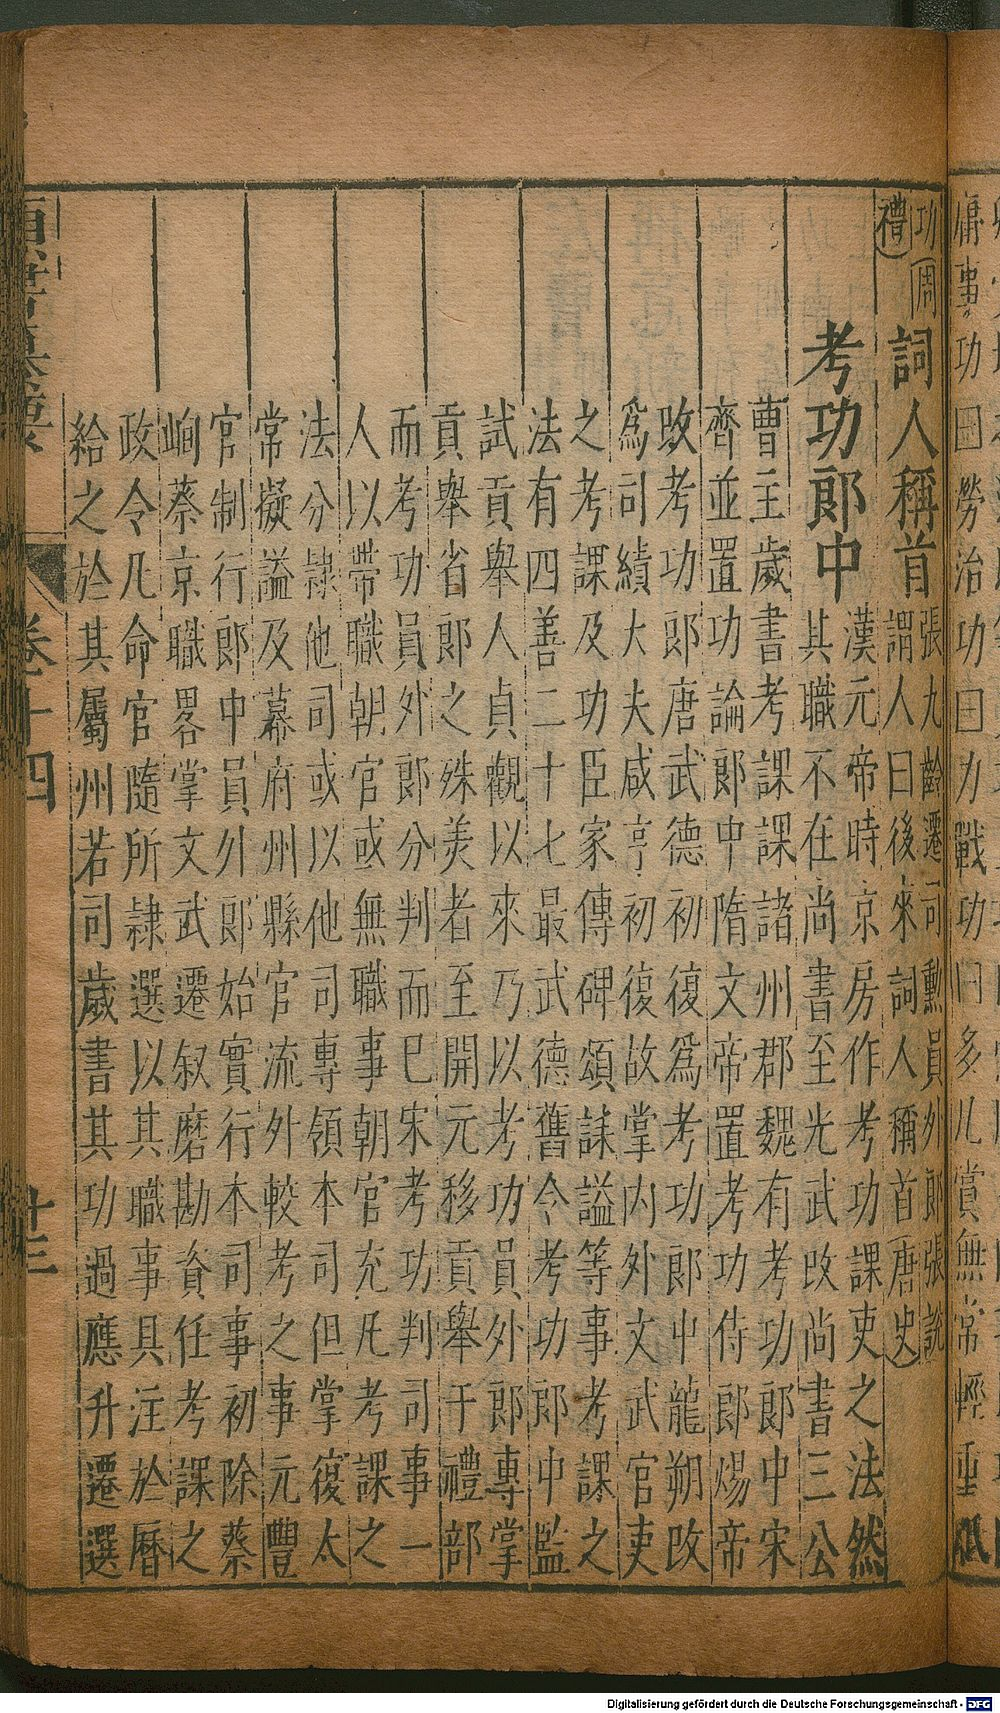 庸事功曰勞治功曰力戰功曰多凡賞無常輕重眡
功周
禮
詞人稱首
張九齡遷司勳員外郎張說
謂人曰後來詞人稱首唐史
考功郎中
漢元帝時京房作考功課吏之法然
其職不在尚書至光武改尚書三公
曹主歲書考課課諸州郡魏有考功郎中宋
齊並置功論郎中隋文帝置考功侍郎煬帝
改考功郎唐武德初復爲考功郎中龍朔改
爲司績大夫咸亨初復故掌内外文武官吏
之考課及功臣家傳碑頌誄謚等事考課之
法有四善二十七最武德舊令考功郎中監
試貢舉人貞觀以來乃以考功員外郎專掌
貢舉省郎之殊美者至開元移貢舉于禮部
而考功員外郎分判而已宋考功判司事一
人以帶職朝官或無職事朝官充凡考課之
法分隸他司或以他司專領本司但掌覆太
常擬謚及幕府州縣官流外較考之事元豐
官制行郎中員外郎始實行本司事初除蔡
峋蔡京職畧掌文武遷叙磨勘資任考課之
政令凡命官隨所隸選以其職事具注於曆
給之於其屬州若司歲書其功過應升遷選
卷十四
十三
Digitalisierung gefördert durch die Deutsche Forschungsgemeinschaft - DFG